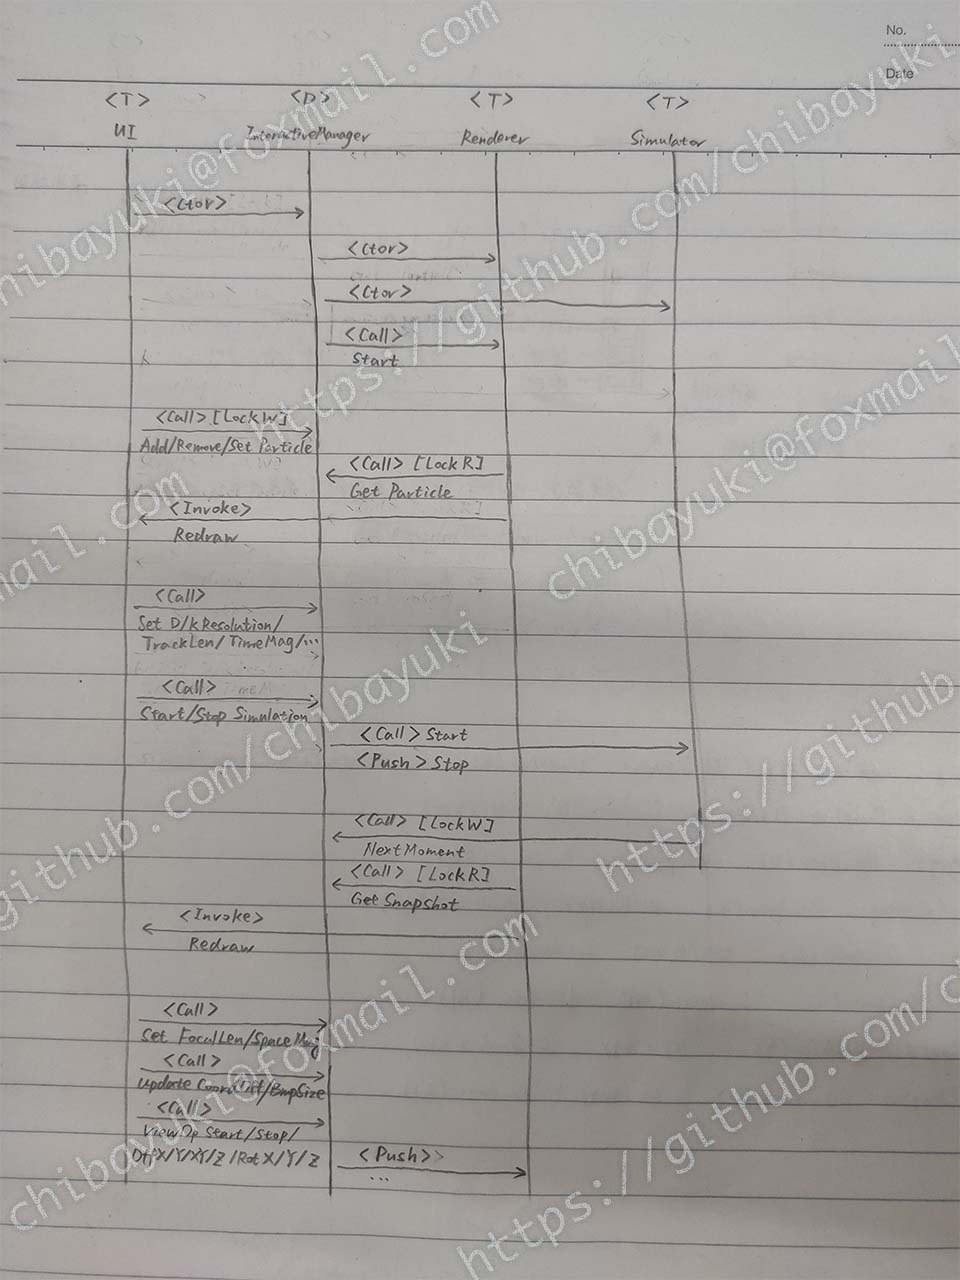 No.
Date
<T> <D> <T> <T>
UI InteractiveManager Renderer Simulator
<Ctor>
<Ctor>
<Ctor>
<Call>
Start
<Call> [LockW]
Add/Remove/Set Particle
<Call> [LockR]
Get Particle
<Invoke>
Redraw
<Call>
Set D/kResolution/
TrackLen/TimeMag/...
<Call>
Start/Stop Simulation
<Call> Start
<Push> Stop
<Call> [LockW]
NextMoment
<Call> [LockR]
Get Snapshot
<Invoke>
Redraw
<Call>
Set FocalLen/SpaceMag
<Call>
Update /BmpSize
<Call>
ViewOp Start/Stop/
OffX/Y/XY/Z/RotX/Y/Z
<Push>
...
chibayuki@foxmail.com
https://github.com/chibayuki
chibayuki@foxmail.com
https://github.com/chibayuki
chibayuki@foxmail.com
https://github
https://github.com/c